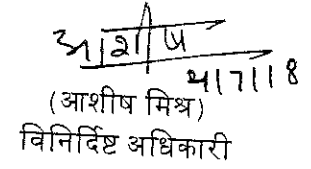 आशीष
4/7/18
(आशीष मिश्र)
विनिर्दिष्ट अधिकारी